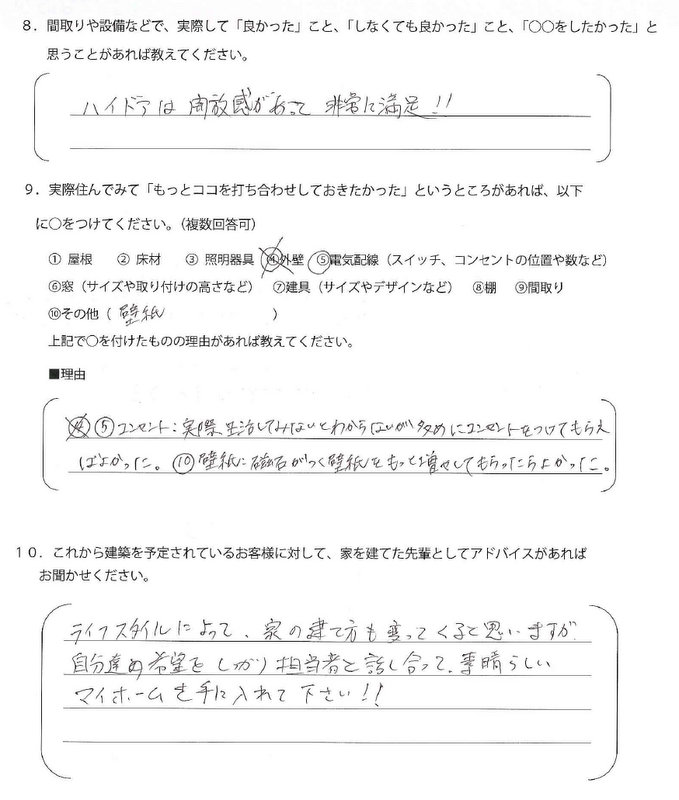 ８．間取りや設備などで、実際して「良かった」こと、「しなくても良かった」こと、「○○をしたかった」と
思うことがあれば教えてください。
ハイドアは 開放感があって 非常に満足!!
９．実際住んでみて「もっとココを打ち合わせしておきたかった」というところがあれば、以下
に○をつけてください。（複数回答可）
① 屋根 ② 床材 ③ 照明器具 ④外壁 ⑤電気配線（スイッチ、コンセントの位置や数など）
⑥窓（サイズや取り付けの高さなど） ⑦建具（サイズやデザインなど） ⑧棚 ⑨間取り
⑩その他（ 壁紙 ）
上記で○を付けたものの理由があれば教えてください。
■理由
⑤コンセント：実際、生活してみないとわからないが多めにコンセントをつけてもらえ
ばよかった。⑩壁紙：磁石がつく壁紙をもっと増やしてもらったらよかった。
１０．これから建築を予定されているお客様に対して、家を建てた先輩としてアドバイスがあれば
お聞かせください。
ライフスタイルによって、家の建て方も変ってくると思いますが
自分達の希望をしっかり担当者と話し合って、素晴らしい
マイホームを手に入れて下さい!!